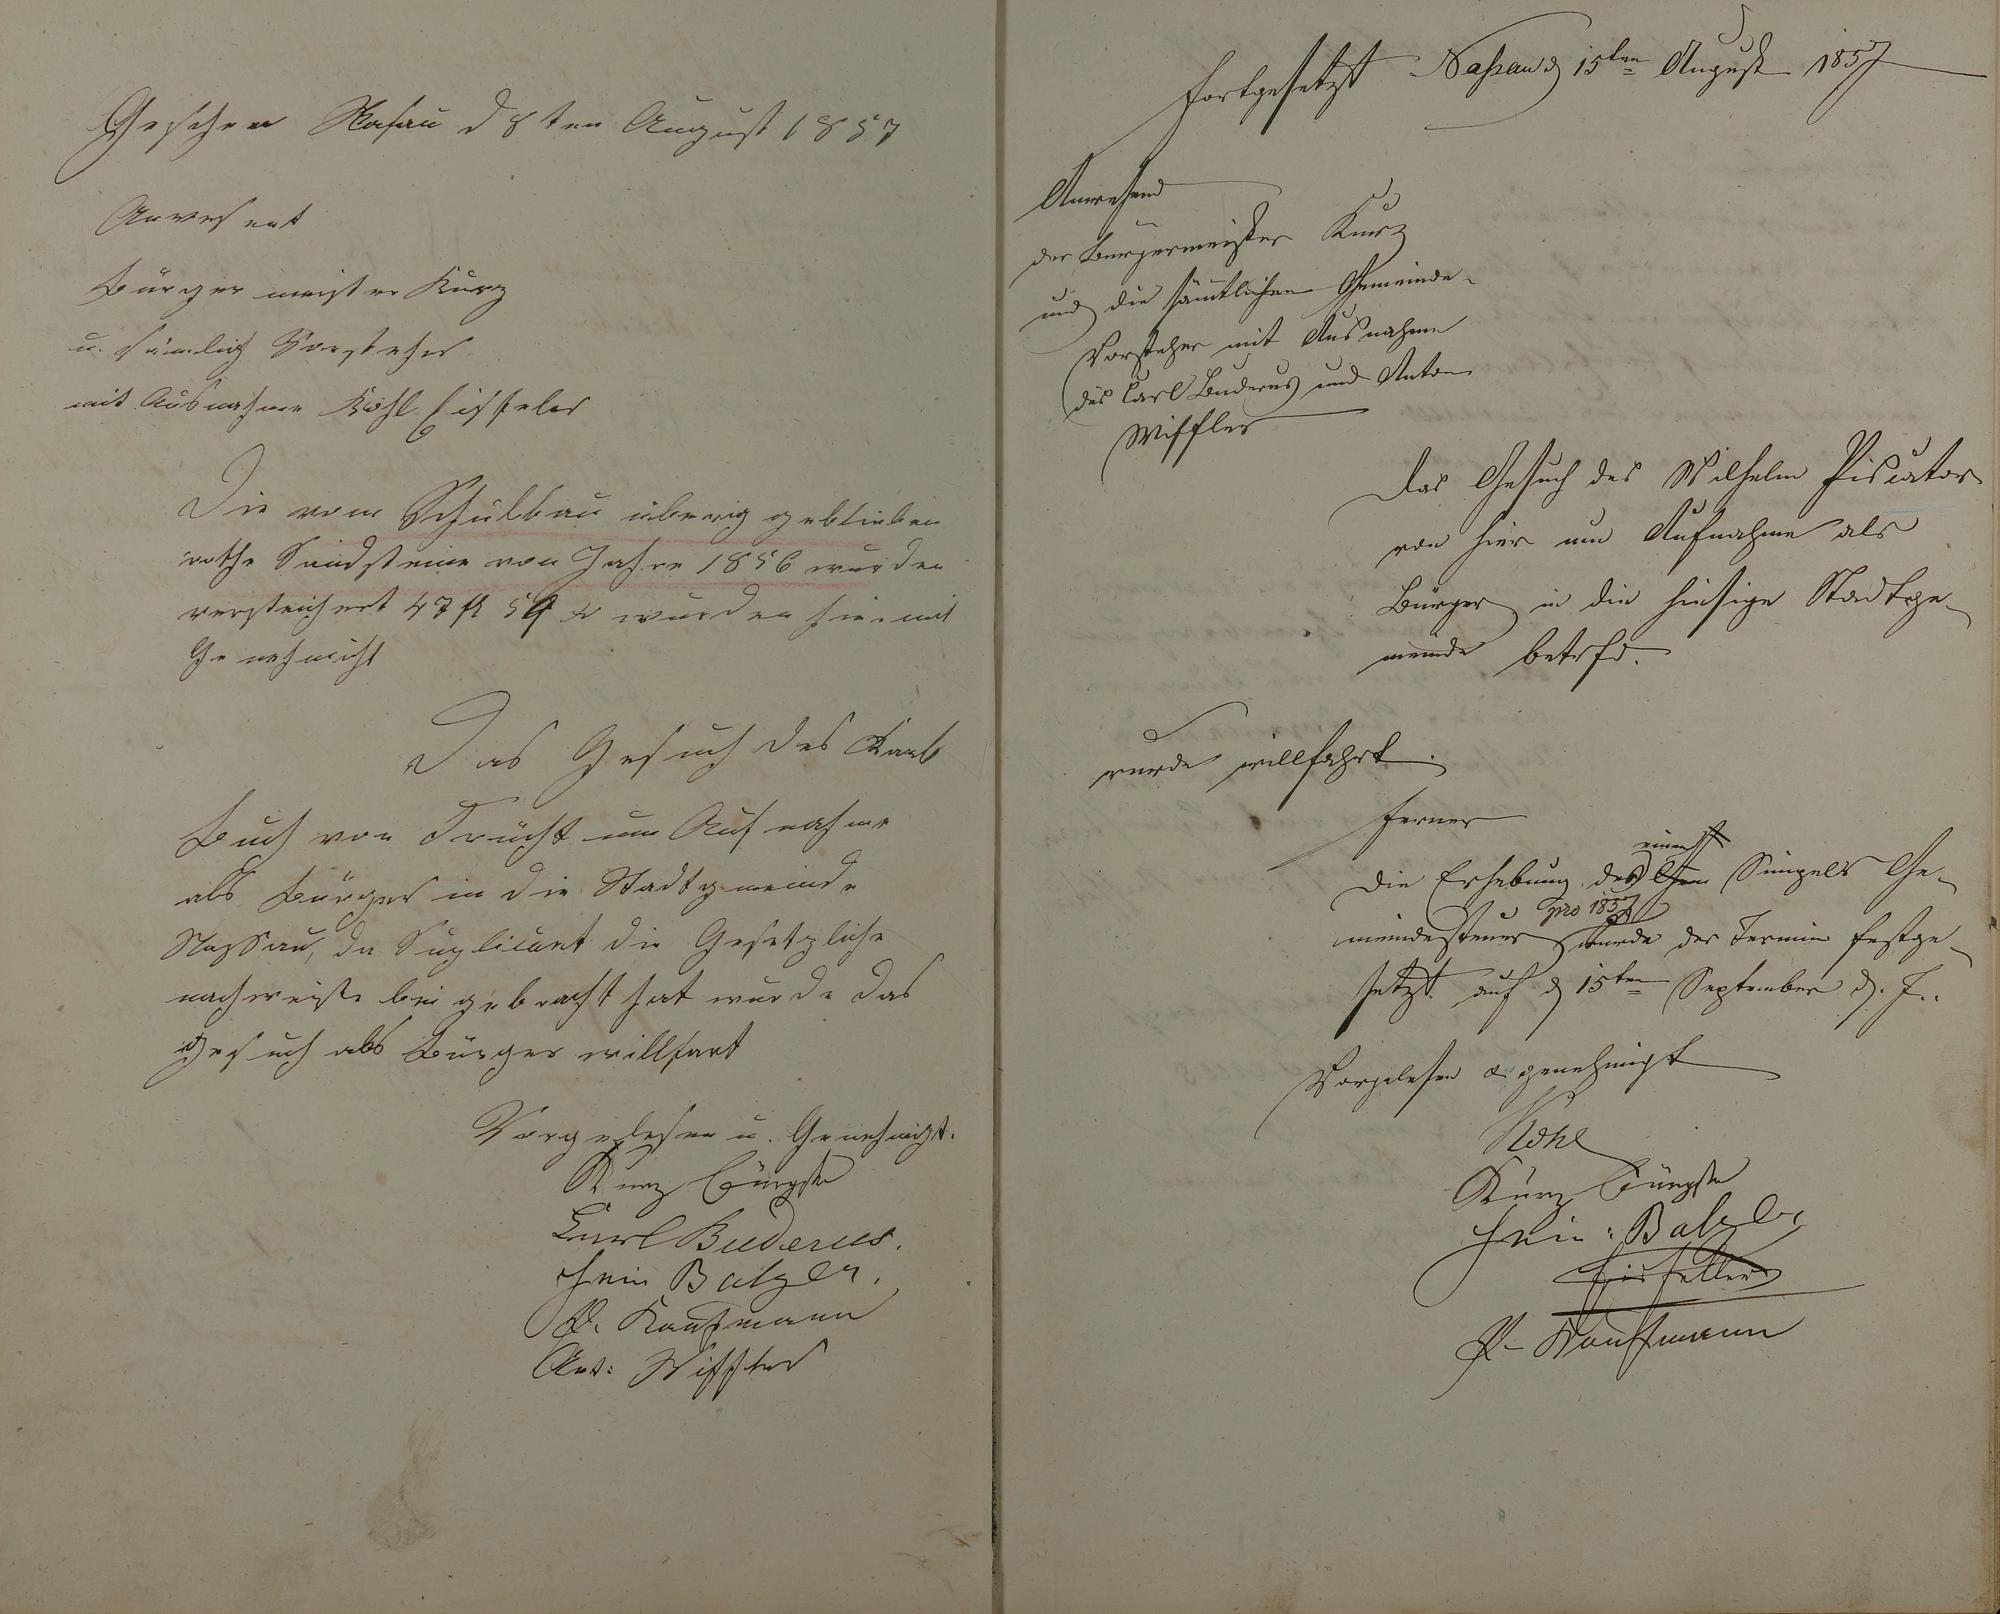 Geschen Nasau d 8ten August 1857
Anwesent
Bürger meister Kurz
u. sämlich Vorsteher
mit Ausnahme Kohl Eisfeler
Die vom Schulbau überig geblieben
rothe Sandsteine von Jahre 1856 wurden
versteichert 47 fl 59 xr wurden hiermit
Genehmicht
Das Gesuch des Karl
Buch von Frücht um Aufnahme
als Bürger in die Stadtgmeinde
Nassau, da Suplicant die Gesetzliche
nachweiße bei gebracht hat wurde das
Gesuch als Bürger willfart
Vorgelesen u. Genehmigt.
Kurz Bürgstr
Carl Buderus.
Hein Balzer.
P. Kaufmann
Ant: Wiffler
Fortgesetzt Naßau d 15ten August 1857
Anwesend
der Burgermeister Kurz
und die sämtlichen Gemeinde-
Vorsteher mit Ausnahme
des Carl Buderus und Anton
Wiffler
Das Gesuch des Wilhelm Piscator
von hier um Aufnahme als
Bürger in die hiesige Stadtge-
meinde betrfd.
wurde willfahrt.
Ferner
Die Erhebung des Simpels Ge-
meindesteuer pro 1857 wurde der Termin festge-
setzt auf d 15ten September d. J.
Vorgelesen & genehmigt
Kohl
Kurz Bürgstr
Hein: Balzer
Eisfeller
P. Kauffmann